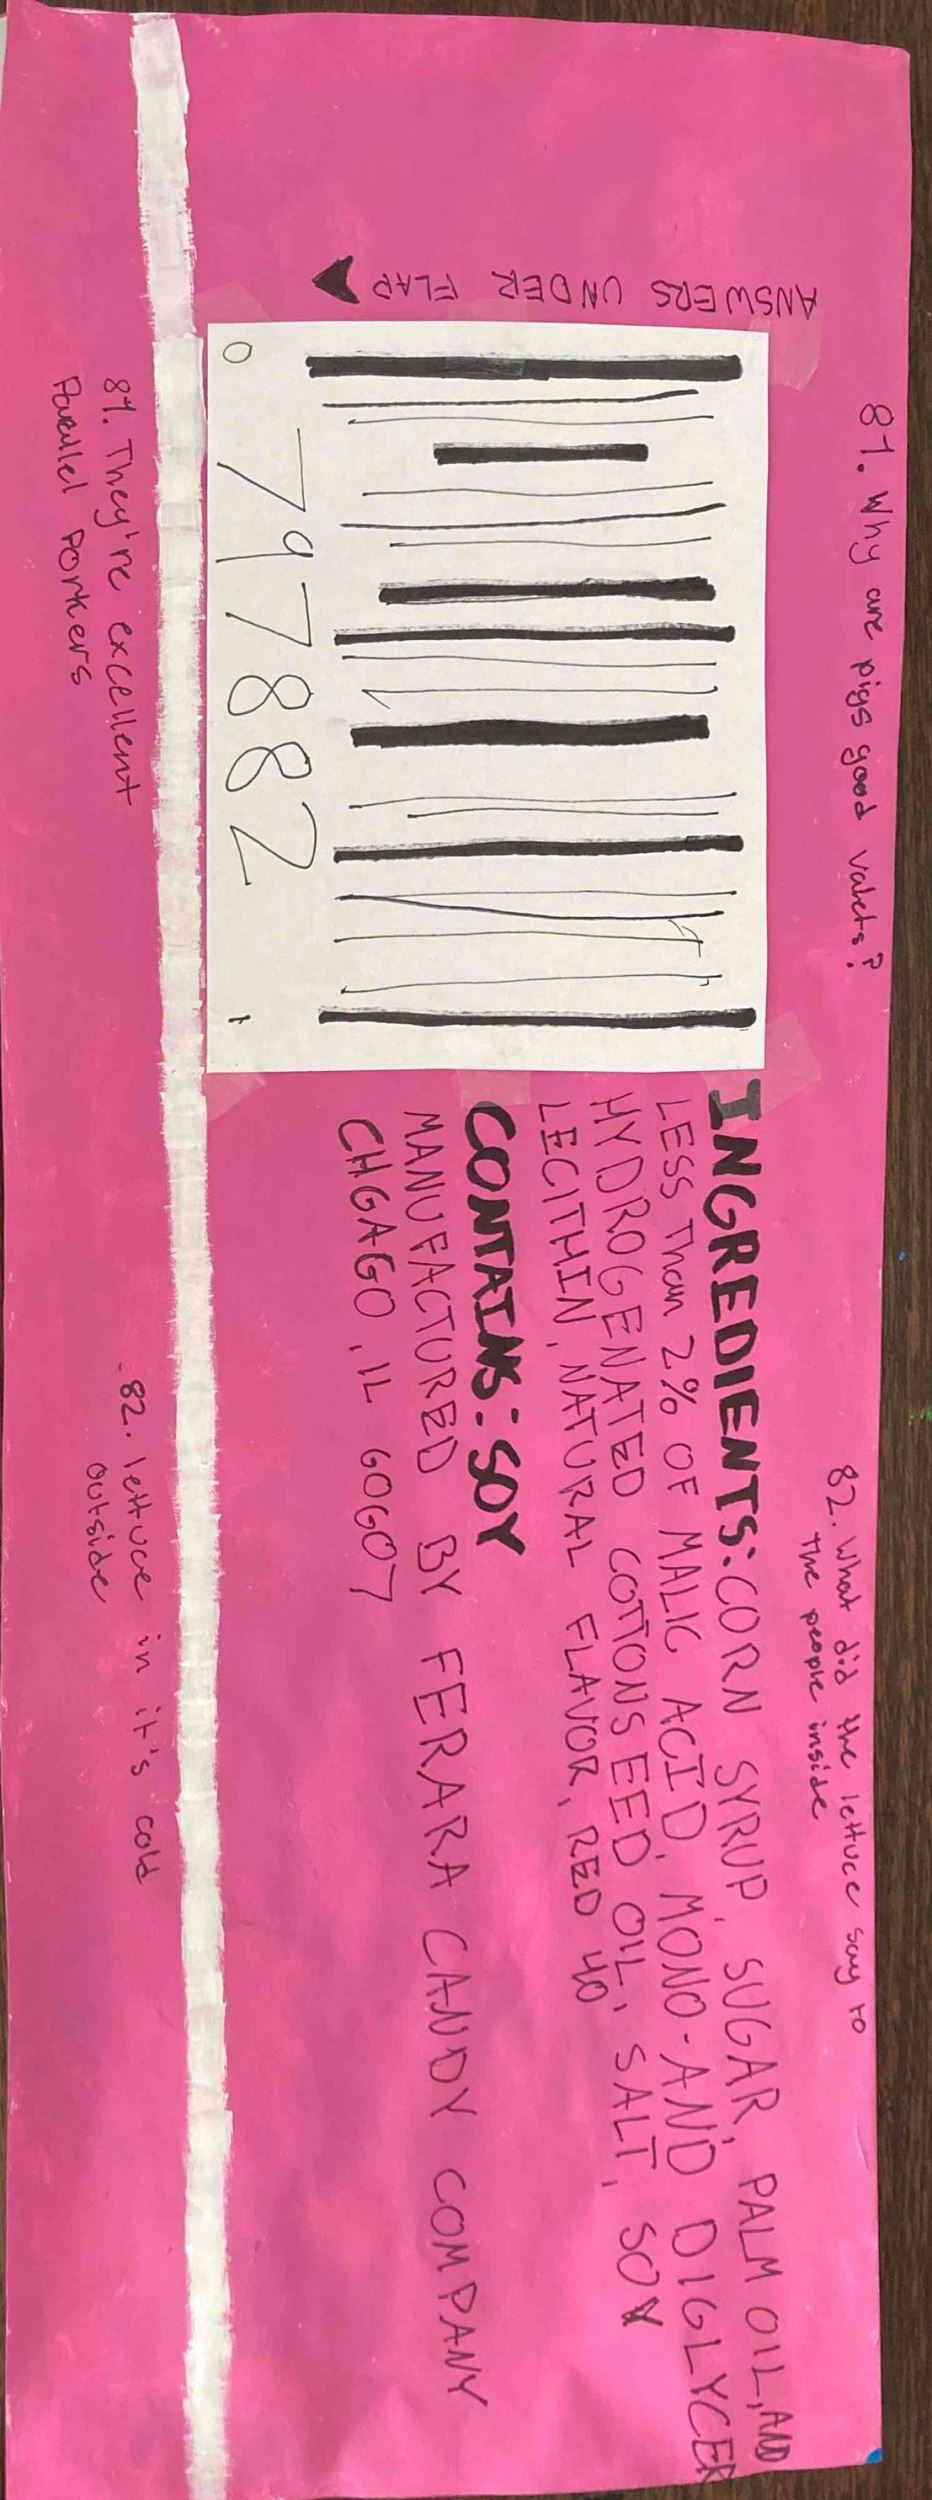 81. Why are pigs good valets?
82. What did the lettuce say to
the people inside
ANSWERS UNDER FLAP
INGREDIENTS: CORN SYRUP, SUGAR, PALM OIL, AND
LESS Than 2% OF MALIC ACID, MONO-AND DIGLYCER
HYDROGENATED COTTONSEED OIL, SALT, SOY
LECITHIN, NATURAL FLAVOR, RED 40
CONTAINS: SOY
MANUFACTURED BY FERARA CANDY COMPANY
CHGAGO, IL 60607
0 797882 1
81. They're excellent
Parallel Porkers
82. lettuce in it's cold
outside